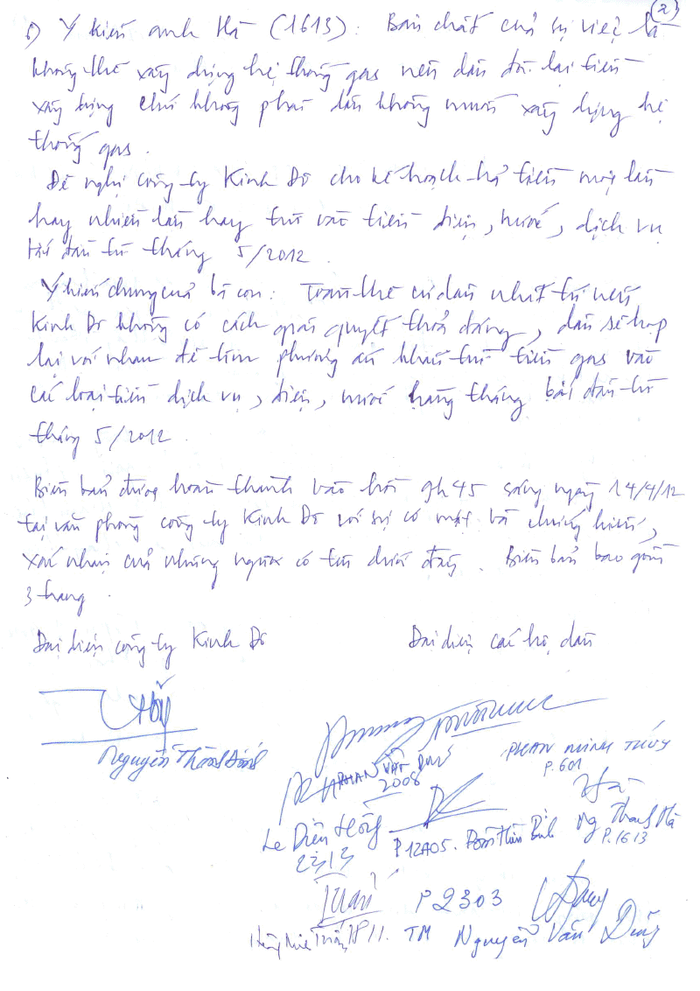 (2)
6) Ý kiến anh Hà (1613): Bản chất của sự việc là
không thể xây dựng hệ thống gas nên dân đòi lại tiền
xây dựng chứ không phải dân không muốn xây dựng hệ
thống gas.
Đề nghị công ty Kinh Đô cho kế hoạch trả tiền một lần
hay nhiều lần hay trừ vào tiền điện, nước, dịch vụ
bắt đầu từ tháng 5/2012.
Ý kiến chung của bà con: Toàn thể cư dân nhất trí nếu
Kinh Đô không có cách giải quyết thoả đáng, dân sẽ họp
lại với nhau để tìm phương án khấu trừ tiền gas vào
các loại tiền dịch vụ, điện, nước hàng tháng bắt đầu từ
tháng 5/2012.
Biên bản được hoàn thành vào hồi 9h45 sáng ngày 14/4/12
tại văn phòng công ty Kinh Đô với sự có mặt và chứng kiến,
xác nhận của những người có tên dưới đây. Biên bản bao gồm
3 trang.
Đại diện công ty Kinh Đô Đại diện các hộ dân
PHAN MINH THÚY
Nguyễn P.601
PHAN VĂN
2008
Le Diên Hồng P12A05. Ng Thanh Hà
2213 P.1613
Tuấn P2303
1811. TM Nguyễn Văn Dũng